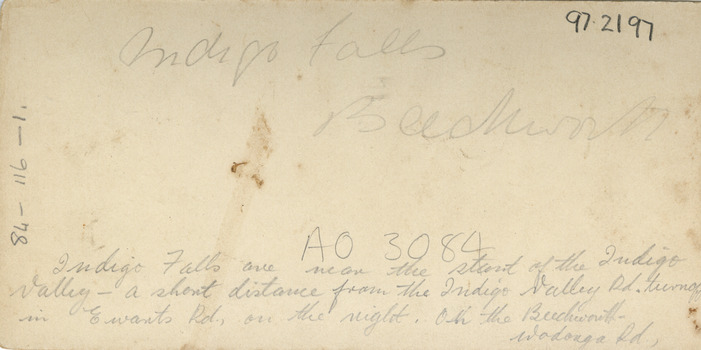 97.2197
Indigo Falls
Beechworth.
84 - 116 - 1.
AO 3084
Indigo Falls are near the start of the Indigo
Valley - a short distance from the Indigo Valley Rd. turnoff
in Ewarts Rd, on the right. Off the Beechworth-
Wodonga Rd,